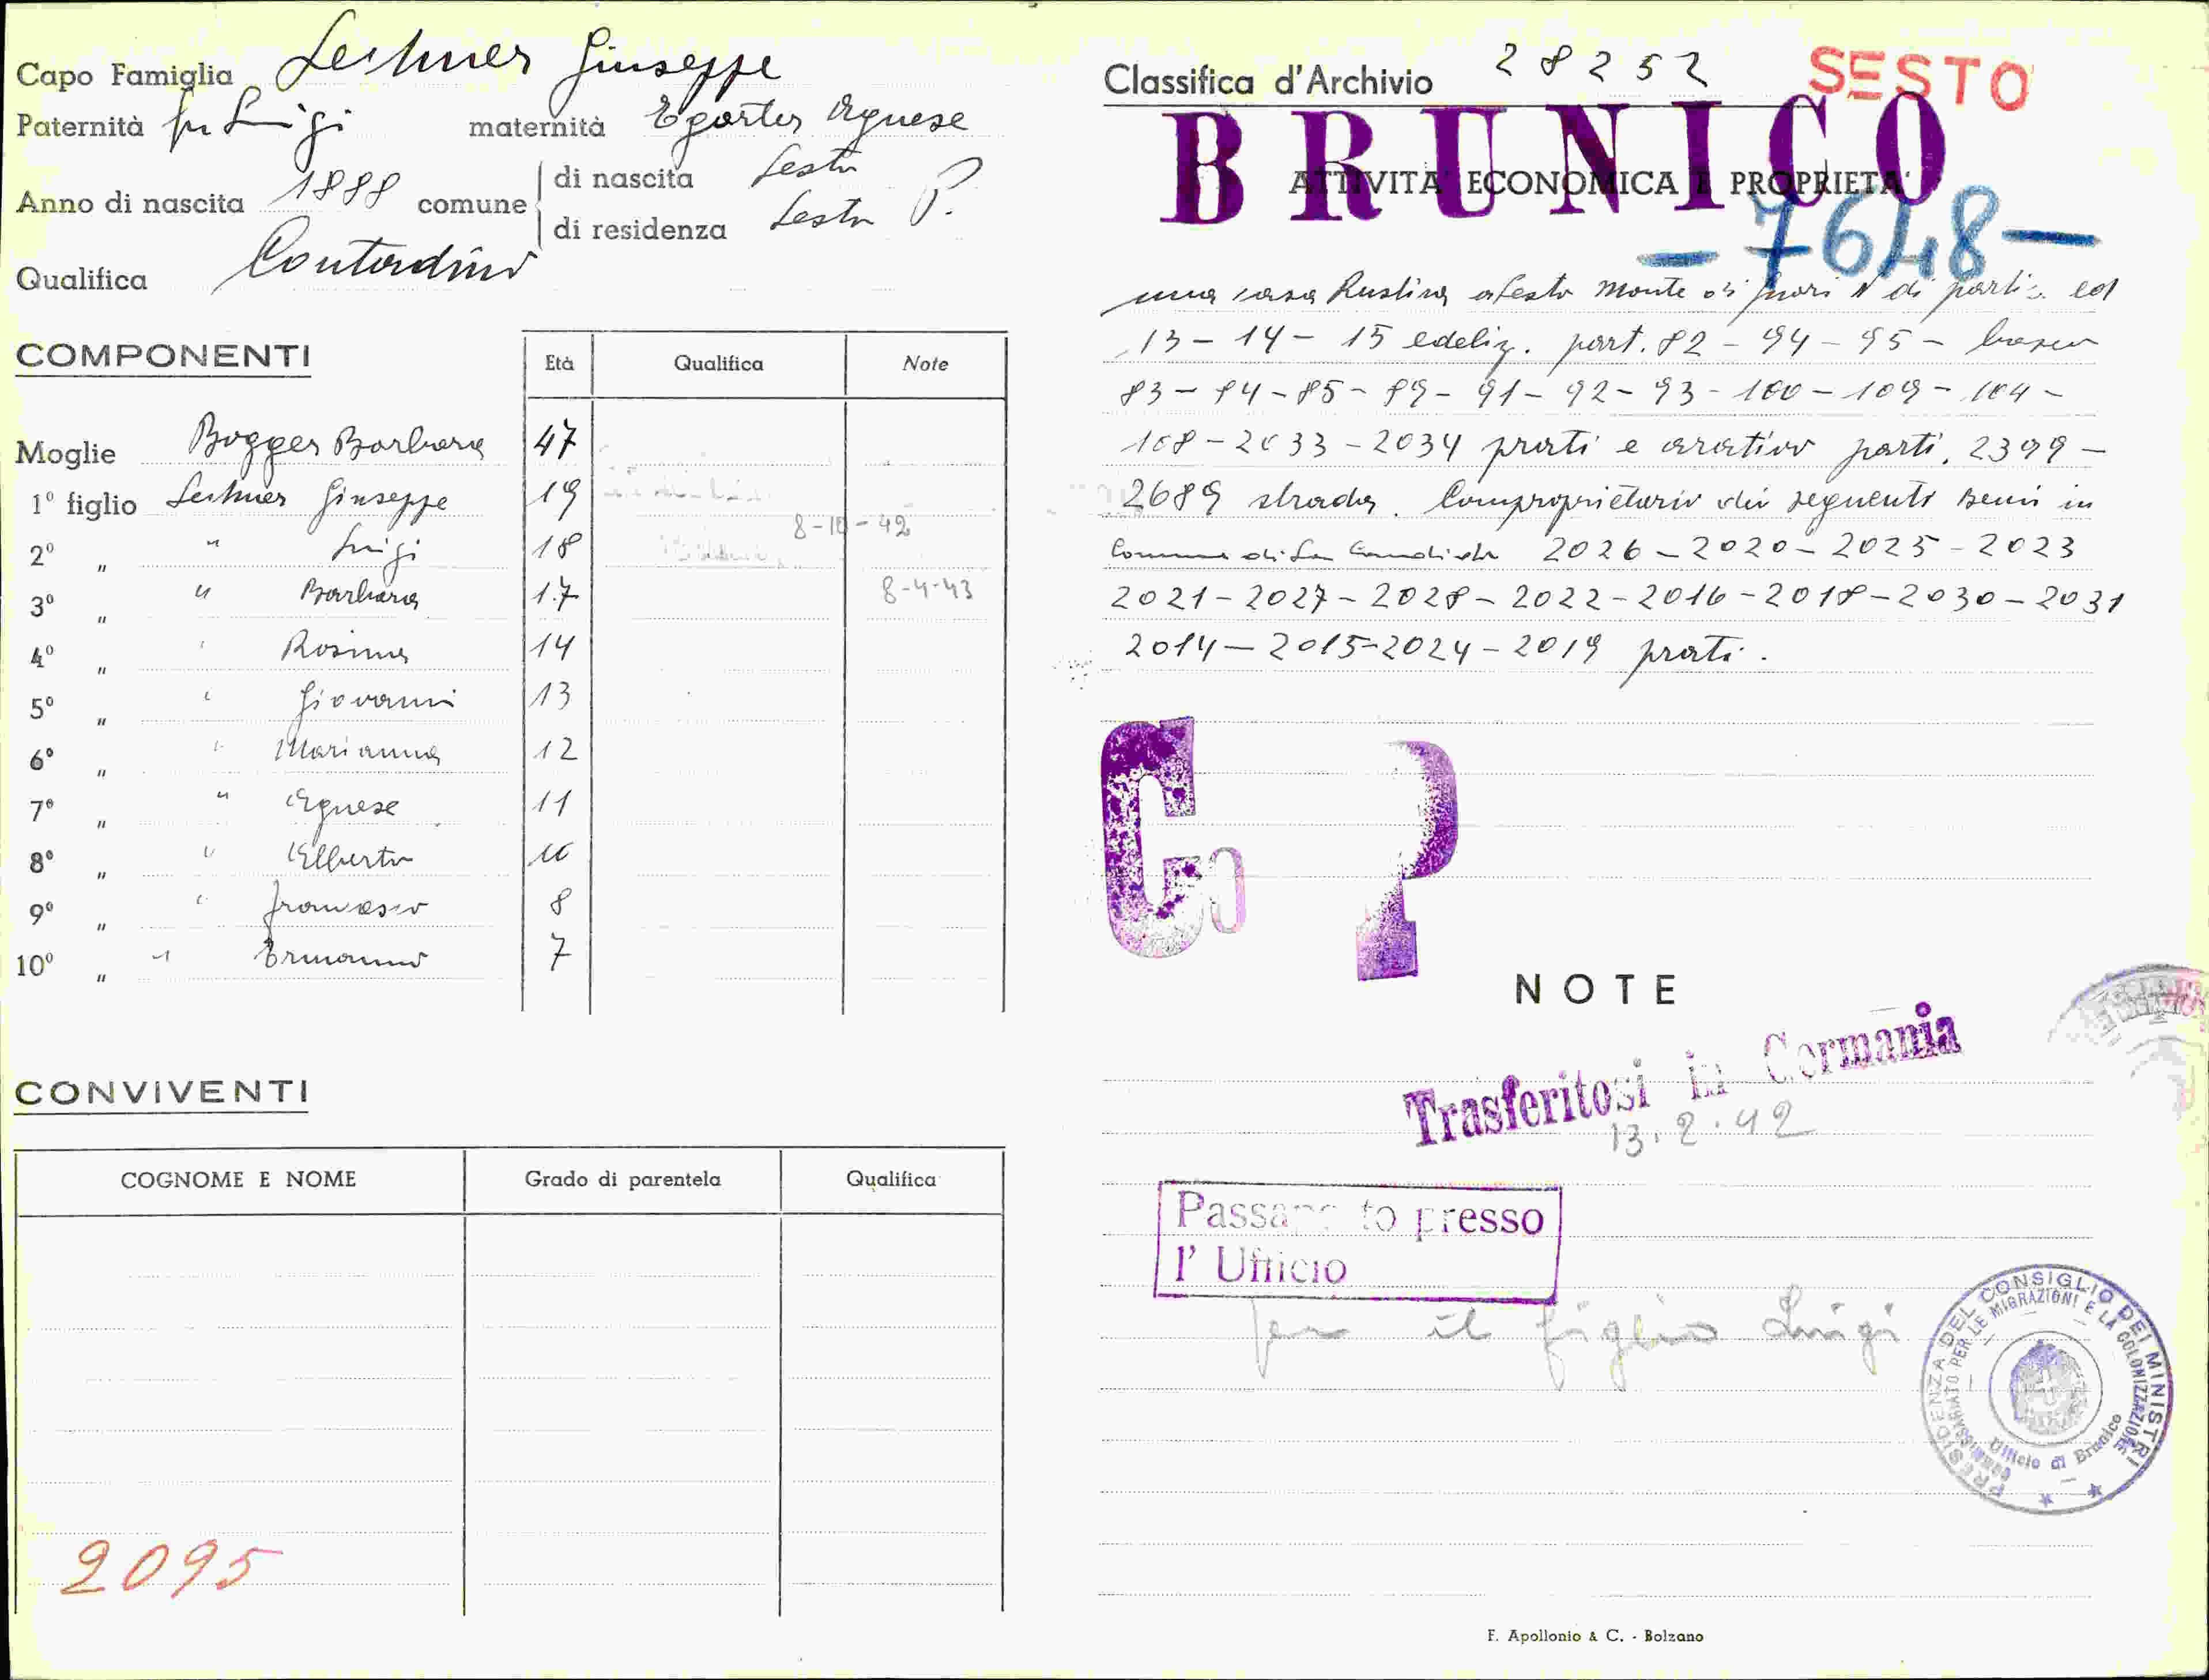 Capo Famiglia Lechner Giuseppe
Paternità fu Luigi maternità Egarter Agnese
Anno di nascita 1888 comune di nascita Sesto
di residenza Sesto P.
Qualifica Contadino
COMPONENTI
Età Qualifica Note
Moglie Barbara 47
1º figlio Lechner Giuseppe 19
8-10-42
2º " " Luigi 18
3º " " Barbara 17 8-4-43
4º " " Rosina 14
5º " " Giovanni 13
6º " " Marianna 12
7º " " Agnese 11
8º " " Alberto 10
9º " " Francesco 8
10º " " Ermanno 7
CONVIVENTI
COGNOME E NOME Grado di parentela Qualifica
2095
Classifica d'Archivio 28252 SESTO
BRUNICO
ATTIVITA' ECONOMICA E PROPRIETA'
-7648-
una casa Rustica a Sesto Monte di fuori N di partic. ed
13 - 14 - 15 edeliz. part. 82 - 94 - 95 - bosco
83 - 84 - 85 - 89 - 91 - 92 - 93 - 100 - 109 - 104 -
108 - 2033 - 2034 prati e arativo parti. 2399 -
2689 strada. Comproprietario dei seguenti beni in
Comune di San Candido 2026 - 2020 - 2025 - 2023
2021 - 2027 - 2028 - 2022 - 2016 - 2018 - 2030 - 2031
2014 - 2015 - 2024 - 2019 prati.
Co ?
NOTE
Trasferitosi in Germania
13.2.42
Passaporto presso
l' Ufficio
per il figlio Luigi
PRESIDENZA DEL CONSIGLIO DEI MINISTRI
COMMISSARIATO PER LE MIGRAZIONI E LA COLONIZZAZIONE
Ufficio di Brunico
F. Apollonio & C. - Bolzano